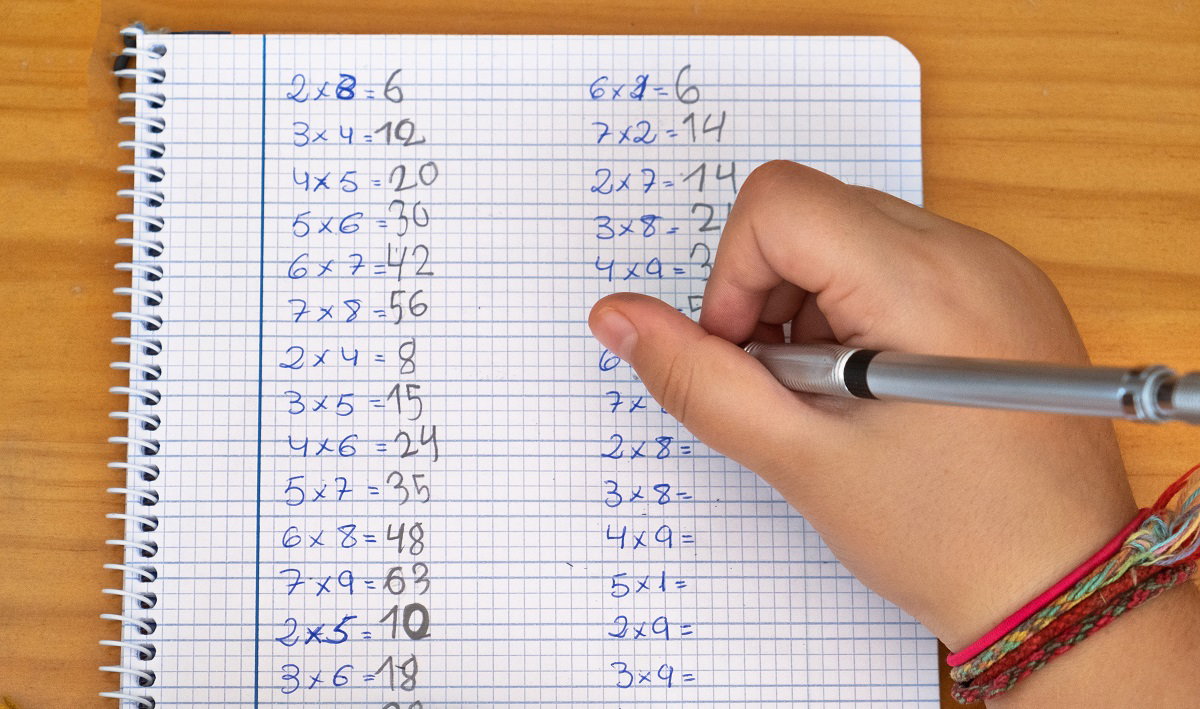 2×8=6
3×4=12
4×5=20
5×6=30
6×7=42
7×8=56
2×4=8
3×5=15
4×6=24
5×7=35
6×8=48
7×9=63
2×5=10
3×6=18
6×1=6
7×2=14
2×7=14
3×8=2
4×9=3
=5
6
7×
2×8=
3×8=
4×9=
5×1=
2×9=
3×9=